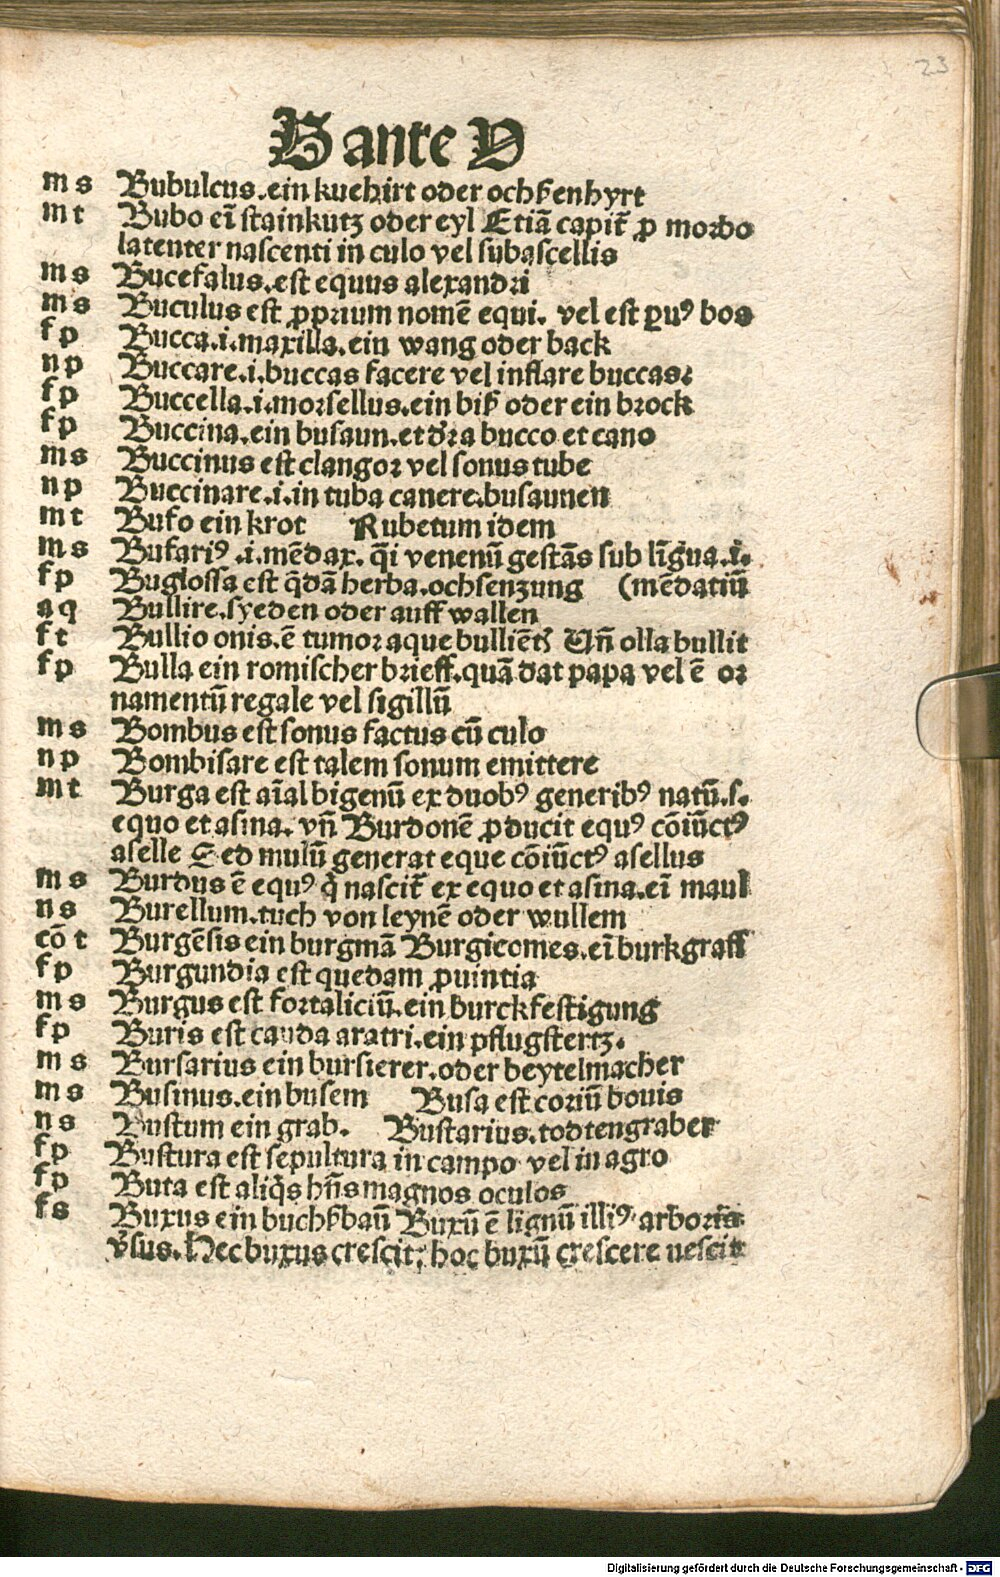 23
B ante V
m s Bubulcus.ein kuehirt oder ochßenhyrt
m t Bubo eī stainkutz oder eyl Etiā capit̄ ꝓ morbo
latenter nascenti in culo vel subascellis
m s Bucefalus.est equus alexandri
m s Buculus est ꝓprium nomē equi. vel est ꝑuꝰ bos
f p Bucca.i.maxilla.ein wang oder back
n p Buccare.i.buccas facere vel inflare buccas:
f p Buccella.i.morsellus.ein biß oder ein brock
f p Buccina.ein busaun.et dr̄ a bucco et cano
m s Buccinus est clangor vel sonus tube
n p Buccinare.i.in tuba canere.busaunen
m t Bufo ein krot Rubetum idem
m s Bufariꝰ .i.mēdax. q̄i venenū gestās sub līgua.i.
f p Buglossa est q̄dā herba.ochsenzung (mēdatiū
a q Bullire.syeden oder auff wallen
f t Bullio onis.ē tumor aque bulliētꝭ Vn̄ olla bullit
f p Bulla ein romischer brieff.quā dat papa vel ē or
namentū regale vel sigillū
m s Bombus est sonus factus cū culo
n p Bombisare est talem sonum emittere
m t Burga est aīal bigenū ex duobꝰ generibꝰ natū.s.
equo et asina. vn̄ Burdonē ꝓducit equꝰ cōiūctꝰ
aselle Sed mulū generat eque cōiūctꝰ asellus
m s Burdus ē equꝰ q̇ nascit̄ ex equo et asina.eī maul
n s Burellum.tuch von leynē oder wullem
cō t Burgēsis ein burgmā Burgicomes.eī burkgraff
f p Burgundia est quedam ꝓuintia
m s Burgus est fortaliciū.ein burckfestigung
f p Buris est cauda aratri.ein pflugstertz.
m s Bursarius ein bursierer.oder beytelmacher
m s Businus.ein busem Busa est coriū bouis
n s Bustum ein grab. Bustarius.todtengraber
f p Bustura est sepultura in campo vel in agro
f p Buta est aliq̇s hn̄s magnos oculos
f s Buxus ein buchßbaū Buxū ē lignū illiꝰ arboris
v̄sus. Hec buxus crescit, hoc buxū crescere nescit
Digitalisierung gefördert durch die Deutsche Forschungsgemeinschaft - DFG